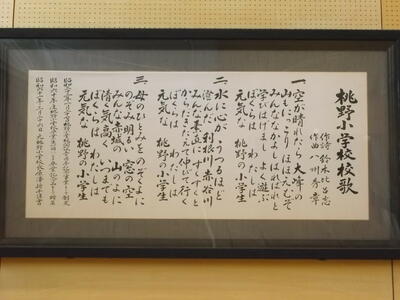 桃野小学校校歌
作詩 鈴木比呂志
作曲 八洲秀章
一、空が晴れたら 大峰の
山もにっこり ほほえむぞ
みんななかよしはればれと
学びはげまし よく遊ぶ
ぼくらは わたしは
元気な 桃野の小学生
二、水に心が うつるほど
澄んだ 利根川 赤谷川
みんな素直に すくすくと
からだきたえて 伸びて行く
ぼくらは わたしは
元気な 桃野の小学生
三、母のひとみを のぞくよに
のぞみ明るい 窓の空
みんな赤城の 山のよに
清く気高く いつまでも
ぼくらは わたしは
元気な 桃野の小学生